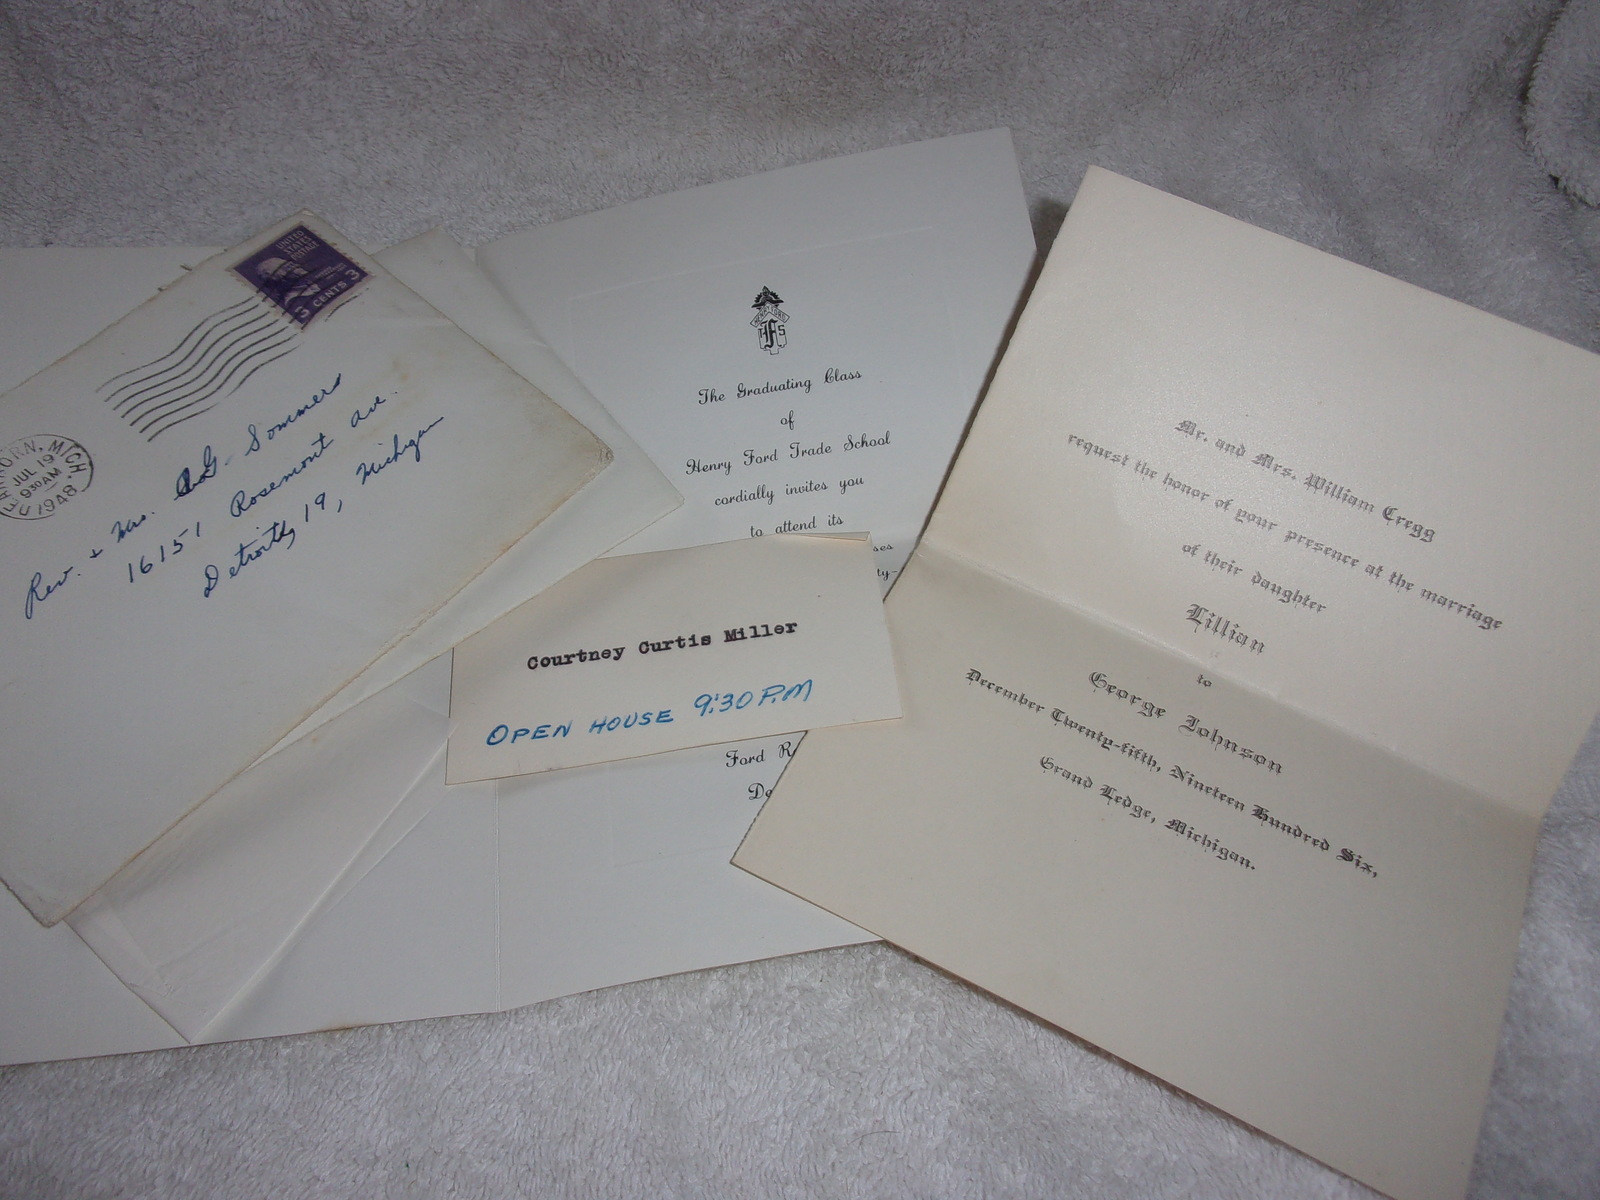 UNITED
STATES
POSTAGE
3 CENTS 3
MICH.
JUL 19
9 30 AM
1948
Rev. + Mrs. G. Sommers
16151 Rosemont ave.
Detroit, 19, Michigan
HENRY FORD
H F S
The Graduating Class
of
Henry Ford Trade School
cordially invites you
to attend its
ses
ty-
Courtney Curtis Miller
OPEN HOUSE 9:30 P.M
Ford R
De
Mr. and Mrs. William Cregg
request the honor of your presence at the marriage
of their daughter
Lillian
to
George Johnson
December Twenty-fifth, Nineteen Hundred Six,
Grand Ledge, Michigan.